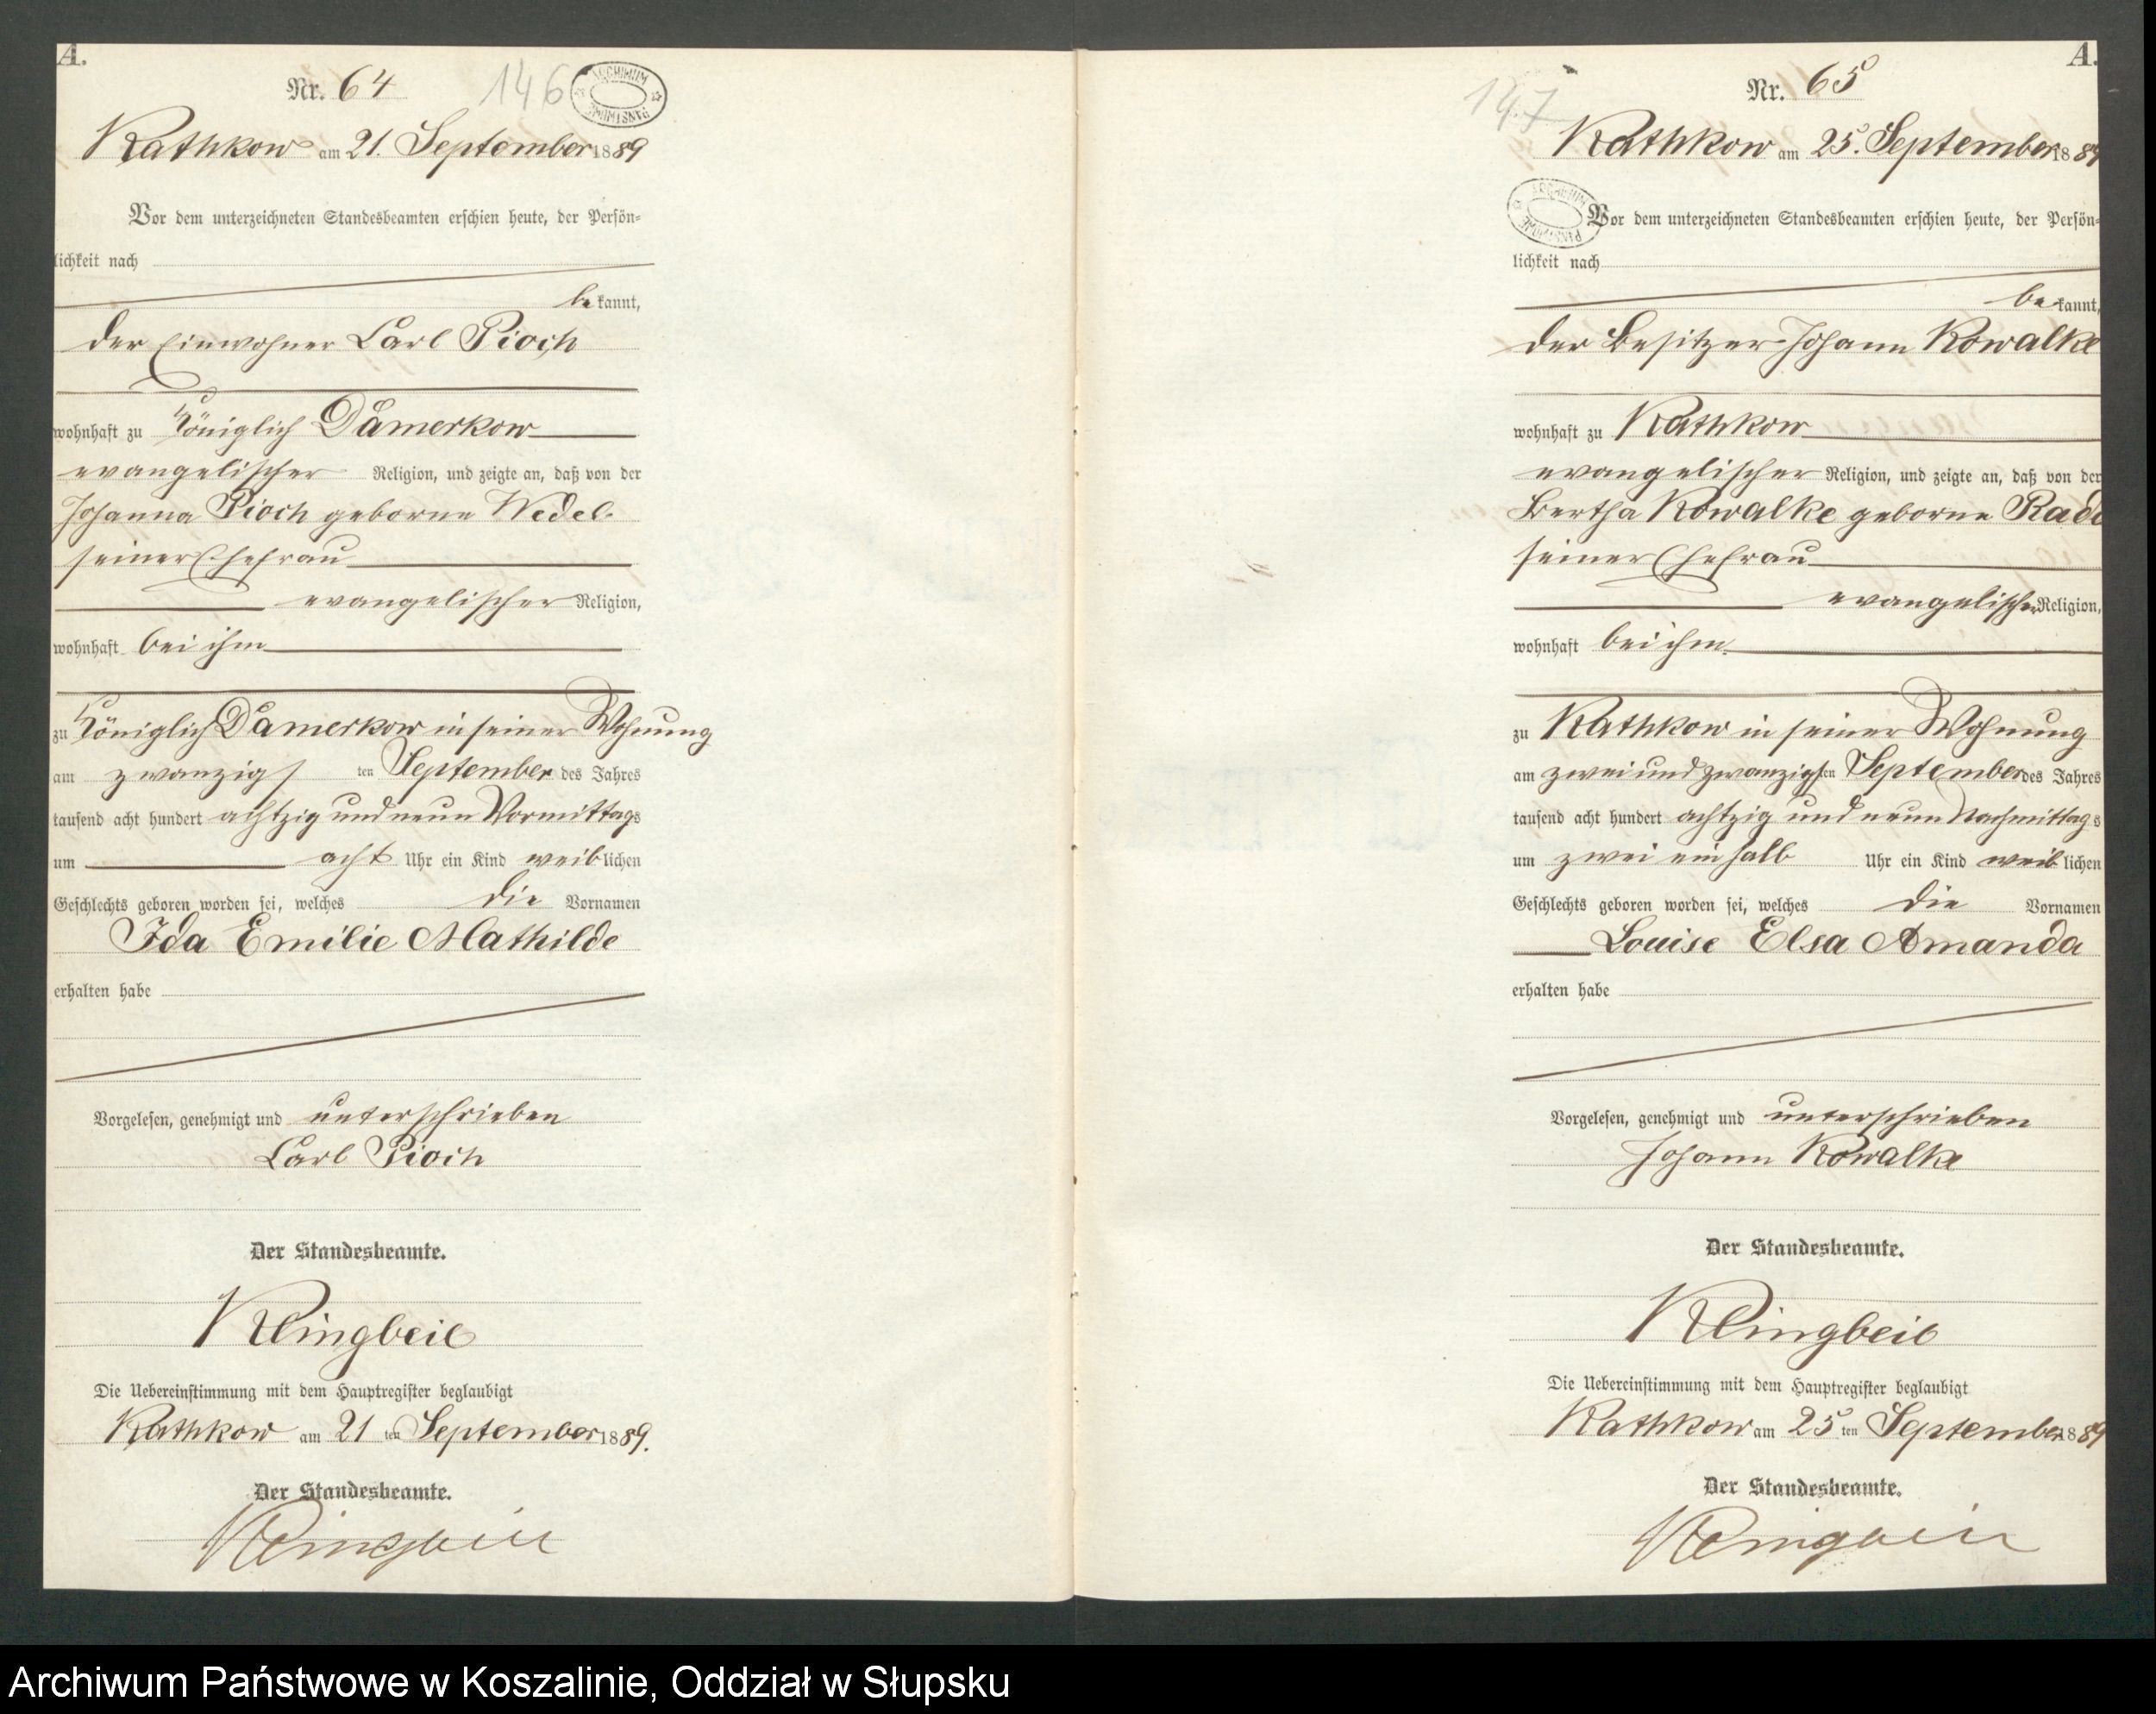 A.
Nr. 64
146
ARCHIWUM PAŃSTWOWE
Rathkow am 21. September 1889
Vor dem unterzeichneten Standesbeamten erschien heute, der Persön-
lichkeit nach
bekannt,
der Einwohner Carl Pioch
wohnhaft zu Königlich Damerkow
evangelischer Religion, und zeigte an, daß von der
Johanna Pioch geborne Wedel
seiner Ehefrau
evangelischer Religion,
wohnhaft bei ihm
zu Königlich Damerkow in seiner Wohnung
am zwanzigsten September des Jahres
tausend acht hundert achtzig und neun Vormittags
um acht Uhr ein Kind weiblichen
Geschlechts geboren worden sei, welches die Vornamen
Ida Emilie Mathilde
erhalten habe
Vorgelesen, genehmigt und unterschrieben
Carl Pioch
Der Standesbeamte.
Klingbeil
Die Uebereinstimmung mit dem Hauptregister beglaubigt
Rathkow am 21 ten September 1889.
Der Standesbeamte.
Klingbeil
A.
Nr. 65
147
Rathkow am 25. September 1889
ARCHIWUM PAŃSTWOWE
Vor dem unterzeichneten Standesbeamten erschien heute, der Persön-
lichkeit nach
bekannt,
der Besitzer Johann Kowalke
wohnhaft zu Rathkow
evangelischer Religion, und zeigte an, daß von der
Bertha Kowalke geborne
seiner Ehefrau
evangelischer Religion,
wohnhaft bei ihm
zu Rathkow in seiner Wohnung
am zwei und zwanzigsten September des Jahres
tausend acht hundert achtzig und neun Nachmittags
um zwei ein halb Uhr ein Kind weiblichen
Geschlechts geboren worden sei, welches die Vornamen
Louise Elsa Amanda
erhalten habe
Vorgelesen, genehmigt und unterschrieben
Johann Kowalke
Der Standesbeamte.
Klingbeil
Die Uebereinstimmung mit dem Hauptregister beglaubigt
Rathkow am 25 ten September 1889
Der Standesbeamte.
Klingbeil
Archiwum Państwowe w Koszalinie, Oddział w Słupsku